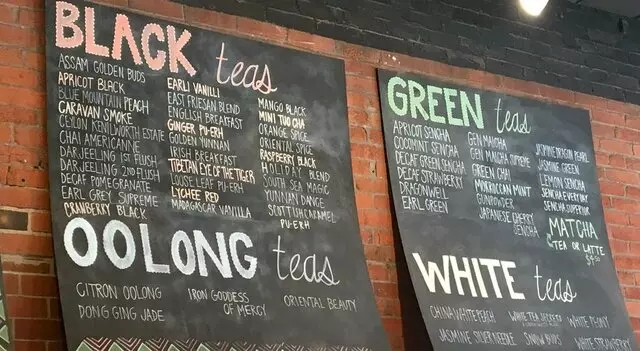 BLACK teas
ASSAM GOLDEN BUDS
APRICOT BLACK
BLUE MOUNTAIN PEACH
CARAVAN SMOKE
CEYLON KENILWORTH ESTATE
CHAI AMERICANNE
DARJEELING 1ST FLUSH
DARJEELING 2ND FLUSH
DECAF POMEGRANATE
EARL GREY SUPREME
CRANBERRY BLACK
EARLI VANILLI
EAST FRIESAN BLEND
ENGLISH BREAKFAST
GINGER PU-ERH
GOLDEN YUNNAN
IRISH BREAKFAST
TIBETAN EYE OF THE TIGER
LOOSE LEAF PU-ERH
LYCHEE RED
MADAGASCAR VANILLA
MANGO BLACK
MINI TUO CHA
ORANGE SPICE
ORIENTAL SPICE
RASPBERRY BLACK
HOLIDAY BLEND
SOUTH SEA MAGIC
YUNNAN DANCE
SCOTTISH CARAMEL
PU-ERH
OOLONG teas
CITRON OOLONG
DONG GING JADE
IRON GODDESS
OF MERCY
ORIENTAL BEAUTY
GREEN teas
APRICOT SENCHA
COCOMINT SENCHA
DECAF GREEN SENCHA
DECAF STRAWBERRY
DRAGONWELL
EARL GREEN
GEN MAICHA
GEN MAICHA SUPREME
GREEN CHAI
MOROCCAN MINT
GUNPOWDER
JAPANESE CHERRY
SENCHA
JASMINE DRAGON PEARL
JASMINE GREEN
LEMON SENCHA
SENCHA EVERYDAY
SENCHA SUPERIOR
MATCHA
TEA OR LATTE
WHITE teas
CHINA WHITE PEACH
JASMINE SILVER NEEDLE
WHITE PEONY
SNOW BUD
WHITE STRAWBERRY